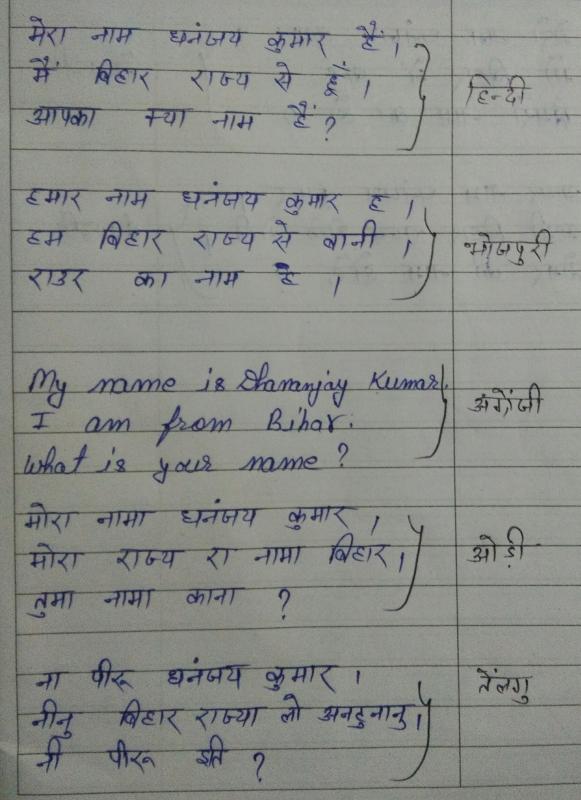 मेरा नाम धनंजय कुमार हैं।
मैं बिहार राज्य से हूँ।
आपका क्या नाम हैं?
हिन्दी
हमार नाम धनंजय कुमार ह।
हम बिहार राज्य से बानी।
राउर का नाम ह।
भोजपुरी
My name is Dhananjay Kumar.
I am from Bihar.
What is your name?
अंग्रेजी
मोरा नामा धनंजय कुमार।
मोरा राज्य रा नामा बिहार।
तुमा नामा काना ?
ओड़ी
ना पीरू धनंजय कुमार।
नीनु बिहार राज्या लो
नी पीरू ?
तेलंगु